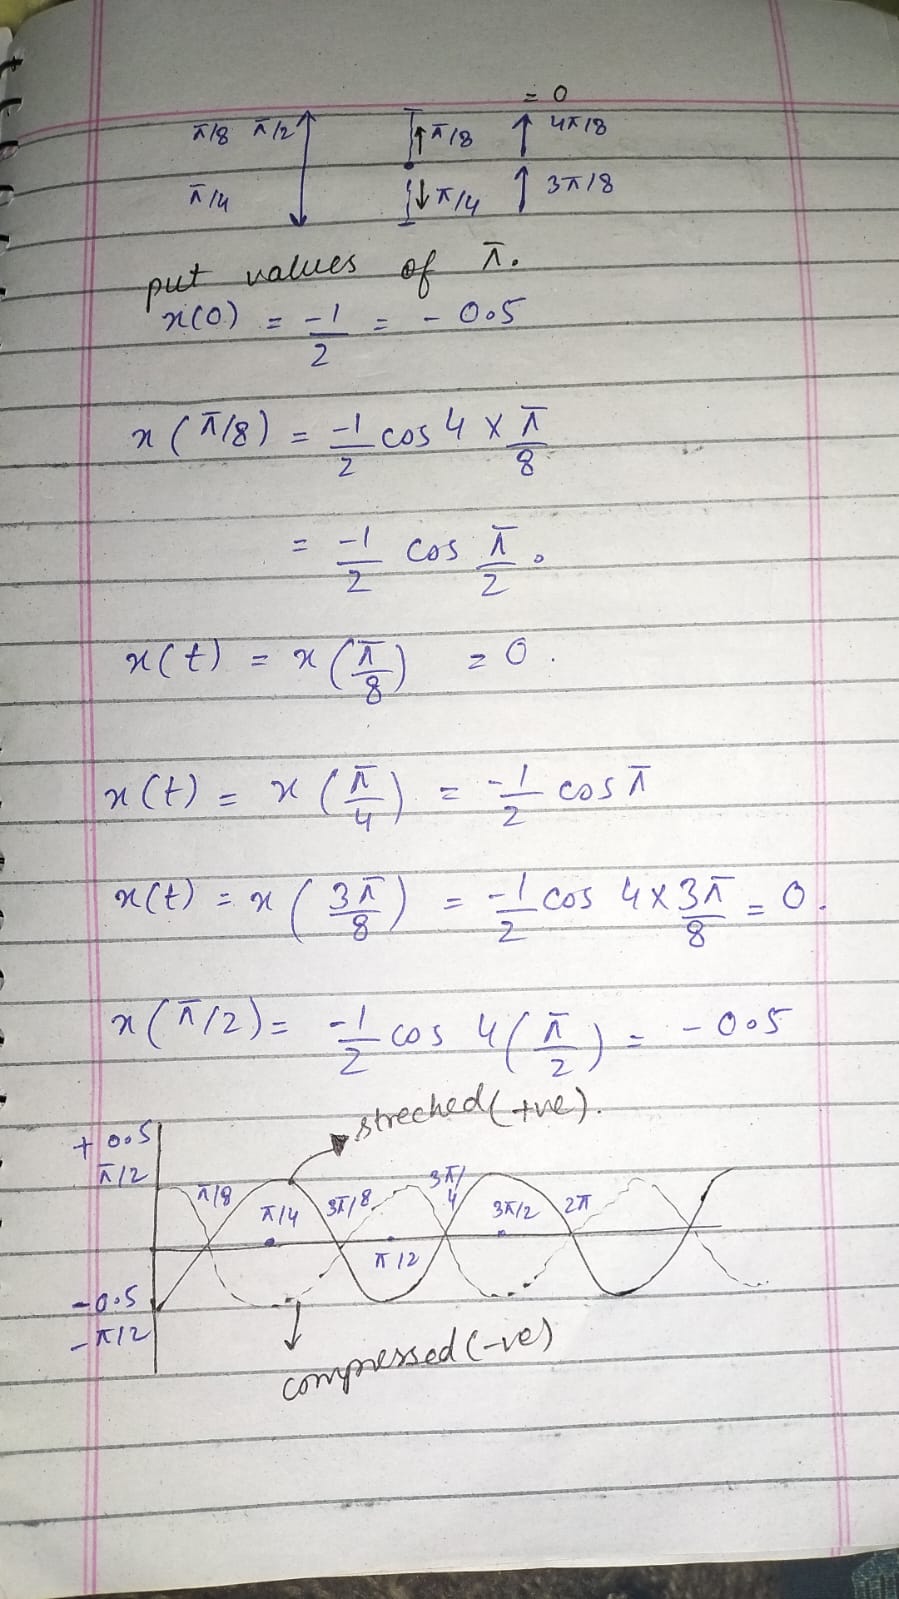 = 0
π/8 π/2 ↑π/8 ↑ 4π/8
π/4 ↓π/4 ↑ 3π/8
put values of π.
x(0) = -1/2 = - 0.5
x(π/8) = -1/2 cos 4 × π/8
= -1/2 cos π/2.
x(t) = x(π/8) = 0.
x(t) = x(π/4) = -1/2 cos π
x(t) = x(3π/8) = -1/2 cos 4×3π/8 = 0.
x(π/2) = -1/2 cos 4(π/2) = - 0.5
streched (+ve).
+ 0.5
π/2
π/8 π/4 3π/8 π/2 3π/4 3π/2 2π
-0.5
-π/2
compressed (-ve)